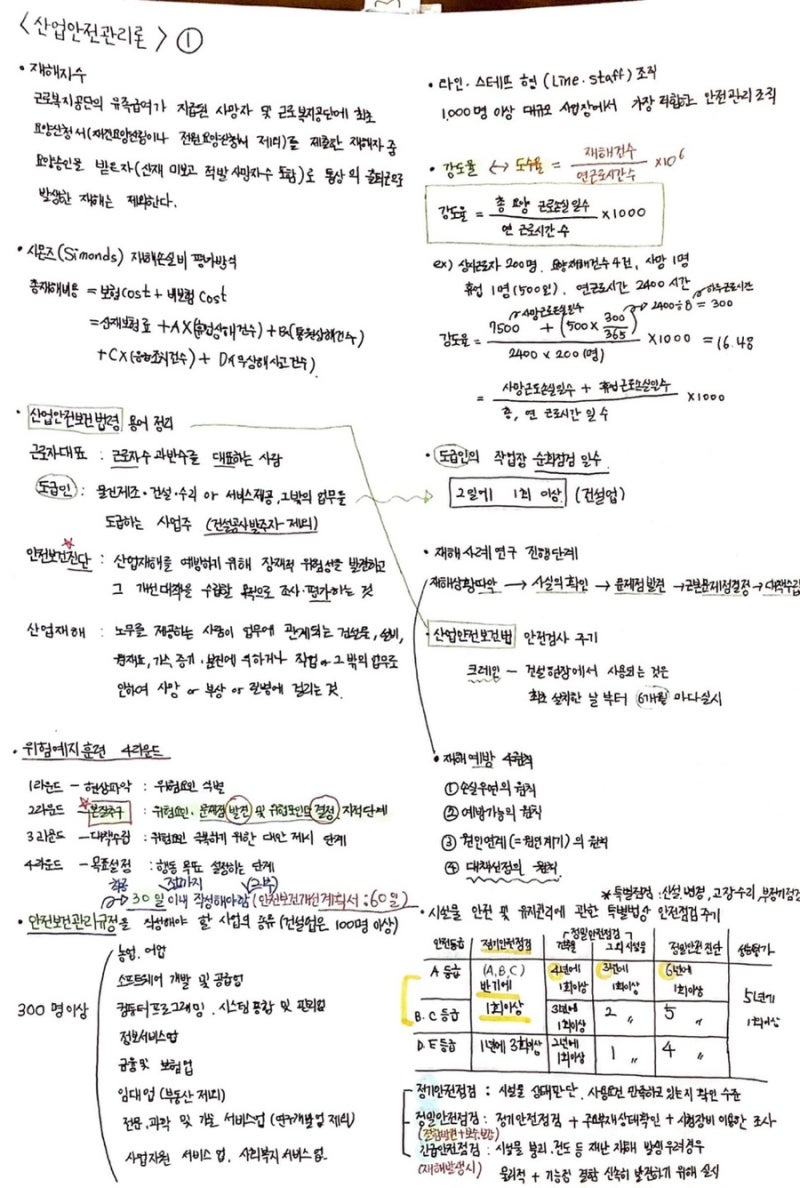 < 산업안전관리론 > ①
• 재해지수
근로복지공단의 유족급여가 지급된 사망자 및 근로복지공단에 최초
요양신청서(재진요양신청이나 전원요양신청서 제외)를 제출한 재해자 중
요양승인을 받은자(산재 미보고 적발 사망자수 포함)로 통상의 출퇴근으로
발생한 재해는 제외한다.
• 시몬즈(Simonds) 재해손실비 평가방식
총재해비용 = 보험cost + 비보험 Cost
= 산재보험료 + A×(휴업상해건수) + B×(통원상해건수)
+ C×(응급조치건수) + D×(무상해사고건수)
• 산업안전보건법령 용어 정리
근로자대표 : 근로자수 과반수를 대표하는 사람
도급인 : 물건제조·건설·수리 or 서비스제공, 그밖의 업무를
도급하는 사업주 (건설공사발주자 제외)
안전보건진단 : 산업재해를 예방하기 위해 잠재적 위험성을 발견하고
그 개선대책을 수립할 목적으로 조사·평가하는 것
산업재해 : 노무를 제공하는 사람이 업무에 관계되는 건설물, 설비,
원재료, 가스, 증기, 분진에 의하거나 작업 or 그 밖의 업무로
인하여 사망 or 부상 or 질병에 걸리는 것.
• 위험예지훈련 4라운드
1라운드 - 현상파악 : 위험요인 식별
2라운드 - 본질추구 : 위험요인, 문제점 발견 및 위험포인트 결정 지적단계
3라운드 - 대책수립 : 위험요인 극복하기 위한 대안 제시 단계
4라운드 - 목표설정 : 행동 목표 설정하는 단계
30일이내 작성해야함 (안전보건개선계획서 : 60일)
• 안전보건관리규정을 작성해야 할 사업의 종류 (건설업은 100명 이상)
300명이상
농업, 어업
소프트웨어 개발 및 공급업
컴퓨터프로그래밍, 시스템 통합 및 관리업
정보서비스업
금융 및 보험업
임대업 (부동산 제외)
전문, 과학 및 기술 서비스업 (연구개발업 제외)
사업지원 서비스업, 사회복지 서비스업.
• 라인·스태프 형 (Line·staff) 조직
1,000명 이상 대규모 사업장에서 가장 적합한 안전관리 조직
• 강도율 ↔ 도수율 = 재해건수 / 연근로시간수 ×10⁶
강도율 = 총 요양 근로손실일수 / 연 근로시간 수 × 1000
ex) 상시근로자 200명, 요양재해건수 4건, 사망 1명
휴업 1명(500일), 연근로시간 2400 시간
사망근로손실일수
2400÷8 = 300
강도율 = 7500 + (500 × 300/365) / 2400 × 200(명) × 1000 = 16.48
= 사망근로손실일수 + 휴업근로손실일수 / 총, 연 근로시간 일수 × 1000
• 도급인의 작업장 순회점검 일수
2일에 1회 이상 (건설업)
• 재해사례 연구 진행단계
재해상황파악 → 사실의 확인 → 문제점 발견 → 근본문제점결정 → 대책수립
• 산업안전보건법 안전검사 주기
크레인 - 건설현장에서 사용되는 것은
최초 설치한 날 부터 6개월 마다 실시
• 재해예방 4원칙
① 손실우연의 원칙
② 예방가능의 원칙
③ 원인연계(=원인계기)의 원칙
④ 대책선정의 원칙
* 특별점검 : 신설, 변경, 고장수리, 부정기점검
• 시설물 안전 및 유지관리에 관한 특별법상 안전점검 주기
정밀안전점검
안전등급 정기안전점검 건축물 그외 시설물 정밀안전 진단 성능평가
A 등급 (A, B, C) 반기에 1회이상 4년에 1회이상 3년에 1회이상 6년에 1회이상 5년에 1회이상
B. C 등급 3년에 1회이상 2 〃 5 〃
D. E 등급 1년에 3회이상 2년에 1회이상 1 〃 4 〃
정기안전점검 : 시설물 상태판단, 사용요건 만족하고 있는지 확인 수준
정밀안전점검 : 정기안전점검 + 주요부재상태확인 + 시험장비 이용한 조사
긴급안전점검 : 시설물 붕괴, 전도 등 재난 재해 발생우려경우
(재해발생시) 물리적 + 기능적 결함 신속히 발견하기 위해 실시